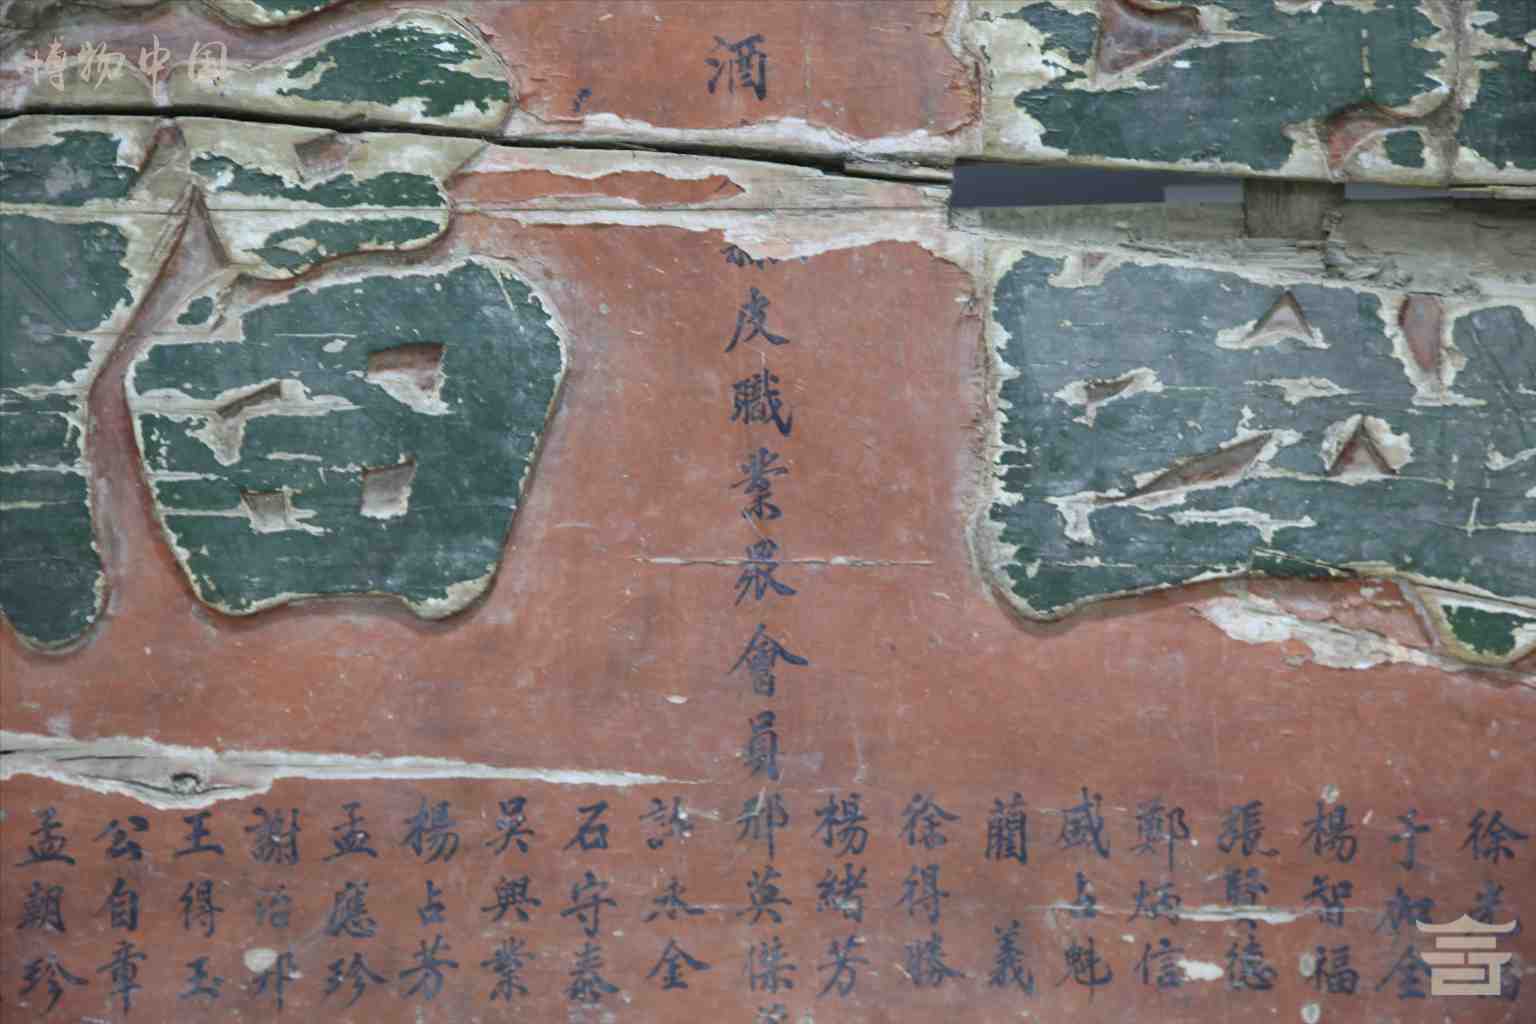 博物中国
酒
皮職業眾會員
徐
于加全
楊智福
張賢德
鄭炳信
盛占魁
藺義
徐得勝
楊緒芳
邢英傑
許永金
石守泰
吳興業
楊占芳
孟應珍
謝治邦
王得玉
公自章
孟朝珍